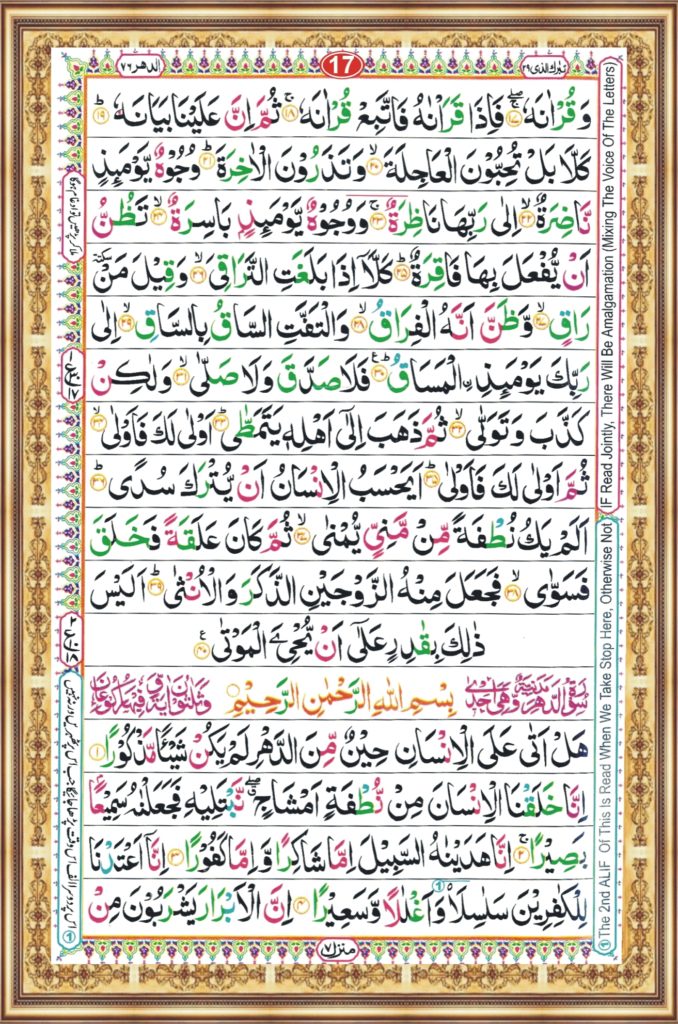 تبٰرك الذی ۲۹
17
الدهر ۷۶
وَقُرْاٰنَهٗ ۚۖ‏﴿۱۷﴾ فَاِذَا قَرَاْنٰهُ فَاتَّبِعْ قُرْاٰنَهٗ ۚ‏﴿۱۸﴾ ثُمَّ اِنَّ عَلَيْنَا بَيَانَهٗ ؕ‏﴿۱۹﴾
كَلَّا بَلْ تُحِبُّوْنَ الْعَاجِلَةَ ۙ‏﴿۲۰﴾ وَتَذَرُوْنَ الْاٰخِرَةَ ؕ‏﴿۲۱﴾ وُجُوْهٌ يَّوْمَىِٕذٍ
نَّاضِرَةٌ ۙ‏﴿۲۲﴾ اِلٰى رَبِّهَا نَاظِرَةٌ ۚ‏﴿۲۳﴾ وَوُجُوْهٌ يَّوْمَىِٕذٍۭ بَاسِرَةٌ ۙ‏﴿۲۴﴾ تَظُنُّ
اَنْ يُّفْعَلَ بِهَا فَاقِرَةٌ ؕ‏﴿۲۵﴾ كَلَّاۤ اِذَا بَلَغَتِ التَّرَاقِىَ ۙ‏﴿۲۶﴾ وَقِيْلَ مَنْ ٚ
رَاقٍ ۙ‏﴿۲۷﴾ وَّظَنَّ اَنَّهُ الْفِرَاقُ ۙ‏﴿۲۸﴾ وَالْتَفَّتِ السَّاقُ بِالسَّاقِ ۙ‏﴿۲۹﴾ اِلٰى
رَبِّكَ يَوْمَىِٕذِ ۟الْمَسَاقُ ؕ‏﴿۳۰﴾ فَلَا صَدَّقَ وَلَا صَلّٰى ۙ‏﴿۳۱﴾ وَلٰكِنْ
كَذَّبَ وَتَوَلّٰى ۙ‏﴿۳۲﴾ ثُمَّ ذَهَبَ اِلٰٓى اَهْلِهٖ يَتَمَطّٰى ؕ‏﴿۳۳﴾ اَوْلٰى لَكَ فَاَوْلٰى ۙ‏﴿۳۴﴾
ثُمَّ اَوْلٰى لَكَ فَاَوْلٰى ؕ‏﴿۳۵﴾ اَيَحْسَبُ الْاِنْسَانُ اَنْ يُّتْرَكَ سُدًى ؕ‏﴿۳۶﴾
اَلَمْ يَكُ نُطْفَةً مِّنْ مَّنِىٍّ يُّمْنٰى ۙ‏﴿۳۷﴾ ثُمَّ كَانَ عَلَقَةً فَخَلَقَ
فَسَوّٰى ۙ‏﴿۳۸﴾ فَجَعَلَ مِنْهُ الزَّوْجَيْنِ الذَّكَرَ وَالْاُنْثٰى ؕ‏﴿۳۹﴾ اَلَيْسَ
ذٰلِكَ بِقٰدِرٍ عَلٰٓى اَنْ يُّحْیِۦَ الْمَوْتٰى‏﴿۴۰﴾
بِسْمِ اللّٰهِ الرَّحْمٰنِ الرَّحِيْمِ
هَلْ اَتٰى عَلَى الْاِنْسَانِ حِيْنٌ مِّنَ الدَّهْرِ لَمْ يَكُنْ شَيْـًٔا مَّذْكُوْرًا‏﴿۱﴾
اِنَّا خَلَقْنَا الْاِنْسَانَ مِنْ نُّطْفَةٍ اَمْشَاجٍ ۖۗ نَّبْتَلِيْهِ فَجَعَلْنٰهُ سَمِيْعًۢا
بَصِيْرًا ۚ‏﴿۲﴾ اِنَّا هَدَيْنٰهُ السَّبِيْلَ اِمَّا شَاكِرًا وَّاِمَّا كَفُوْرًا‏﴿۳﴾ اِنَّاۤ اَعْتَدْنَا
لِلْكٰفِرِيْنَ سَلٰسِلَا۟① وَاَغْلٰلًا وَّسَعِيْرًا‏﴿۴﴾ اِنَّ الْاَبْرَارَ يَشْرَبُوْنَ مِنْ
منزل ۷
① The 2nd ALIF Of This Is Read When We Take Stop Here, Otherwise Not
IF Read Jointly, There Will Be Amalgamation (Mixing The Voice Of The Letters)